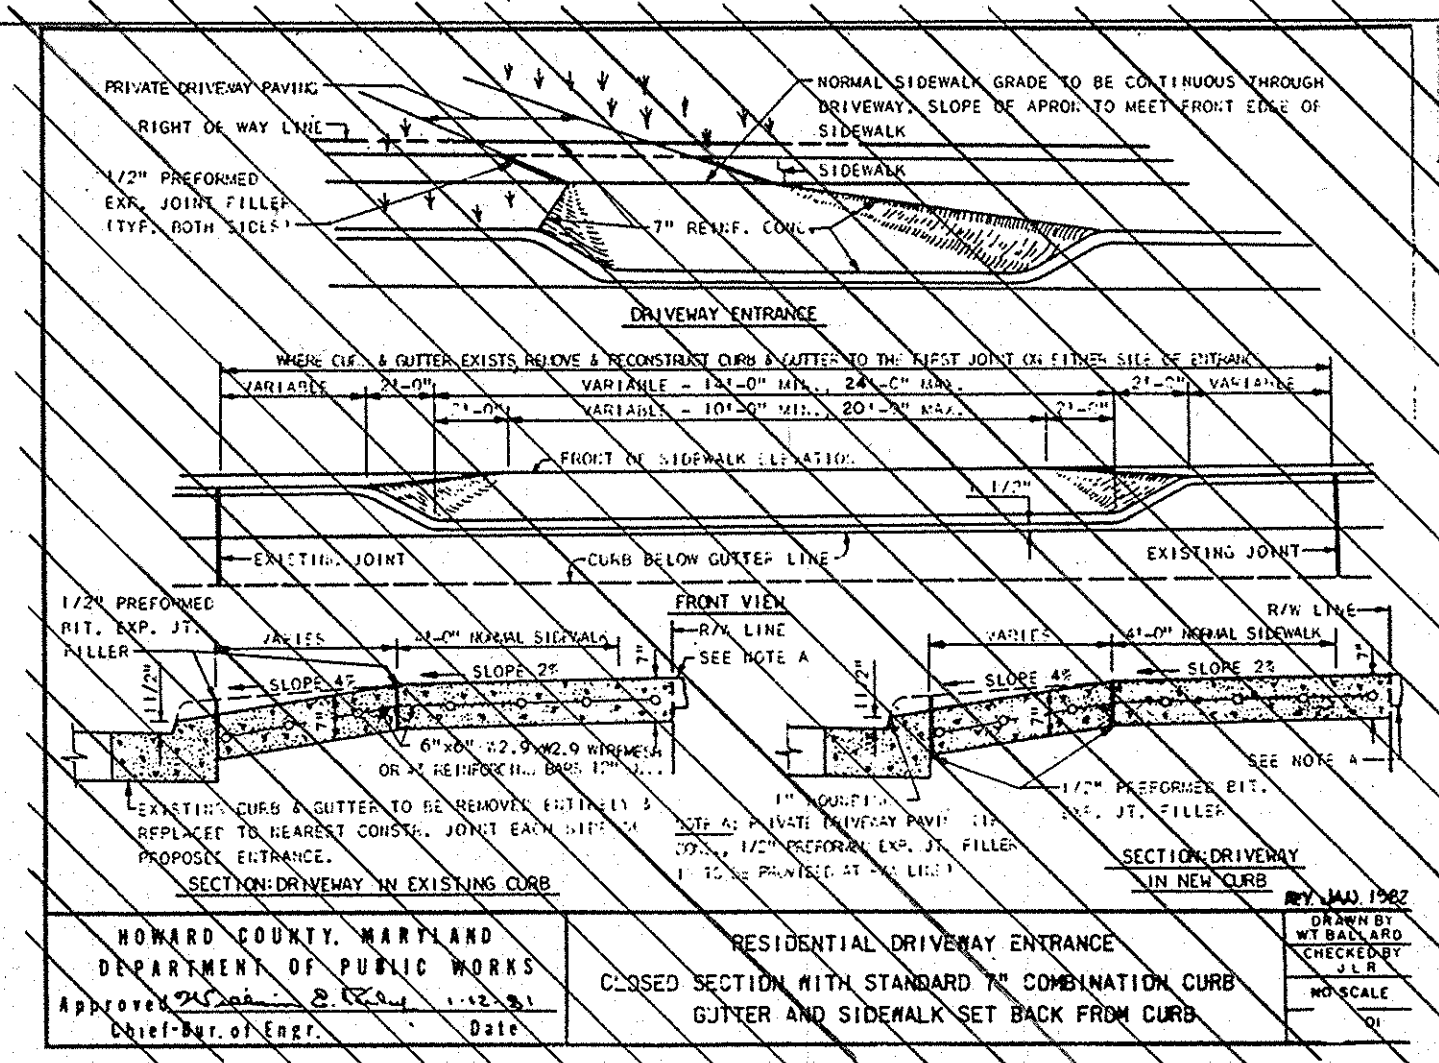 PRIVATE DRIVEWAY PAVING
RIGHT OF WAY LINE
1/2" PREFORMED
EXP. JOINT FILLER
(TYP. BOTH SIDES)
NORMAL SIDEWALK GRADE TO BE CONTINUOUS THROUGH
DRIVEWAY, SLOPE OF APRON TO MEET FRONT EDGE OF
SIDEWALK
SIDEWALK
7" REINF. CONC.
DRIVEWAY ENTRANCE
WHERE CURB & GUTTER EXISTS REMOVE & RECONSTRUCT CURB & GUTTER TO THE FIRST JOINT ON EITHER SIDE OF ENTRANCE
VARIABLE 2'-0" VARIABLE - 14'-0" MIN., 24'-0" MAX. 2'-0" VARIABLE
2'-0" VARIABLE - 10'-0" MIN., 20'-0" MAX. 2'-0"
FRONT OF SIDEWALK ELEVATION
1 1/2"
EXISTING JOINT
CURB BELOW GUTTER LINE
EXISTING JOINT
FRONT VIEW
1/2" PREFORMED
BIT. EXP. JT.
FILLER
VARIES
4'-0" NORMAL SIDEWALK
R/W LINE
SEE NOTE A
7"
1 1/2"
SLOPE 4%
SLOPE 2%
7"
6"x6" W2.9xW2.9 WIREMESH
OR #3 REINFORCING BARS 12"
EXISTING CURB & GUTTER TO BE REMOVED ENTIRELY &
REPLACED TO NEAREST CONSTR. JOINT EACH SIDE OF
PROPOSED ENTRANCE.
SECTION:DRIVEWAY IN EXISTING CURB
R/W LINE
VARIES
4'-0" NORMAL SIDEWALK
7"
1 1/2"
SLOPE 4%
SLOPE 2%
7"
SEE NOTE A
1" ROUNDING
1/2" PREFORMED BIT.
EXP. JT. FILLER
NOTE A: PRIVATE DRIVEWAY PAVING (IF
CONC., 1/2" PREFORMED EXP. JT. FILLER
IS TO BE PROVIDED AT R/W LINE)
SECTION:DRIVEWAY
IN NEW CURB
REV. JAN. 1982
HOWARD COUNTY, MARYLAND
DEPARTMENT OF PUBLIC WORKS
Approved 1-12-81
Chief-Bur. of Engr. Date
RESIDENTIAL DRIVEWAY ENTRANCE
CLOSED SECTION WITH STANDARD 7" COMBINATION CURB
GUTTER AND SIDEWALK SET BACK FROM CURB
DRAWN BY
WT BALLARD
CHECKED BY
J L R
NO SCALE